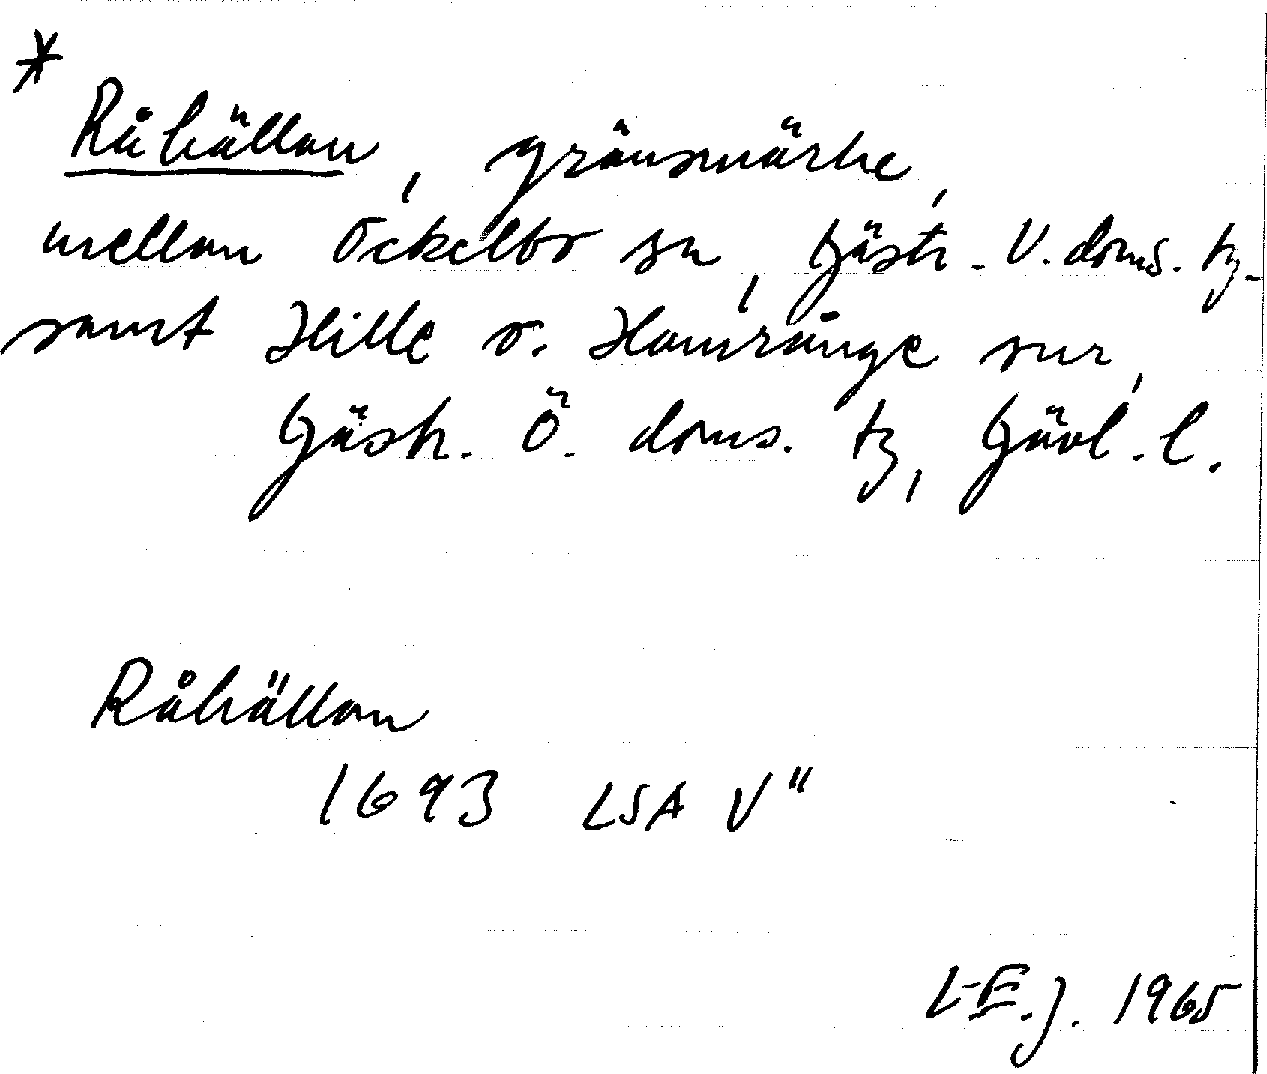 *
Råhällan, gränsmärke,
mellan Ockelbo sn, Gästr. V. doms. tg.
samt Hille o. Hamrånge snr,
Gästr. Ö. doms. tg, Gävl. l.
Råhällan
1693 LSA V"
L-E.J. 1965